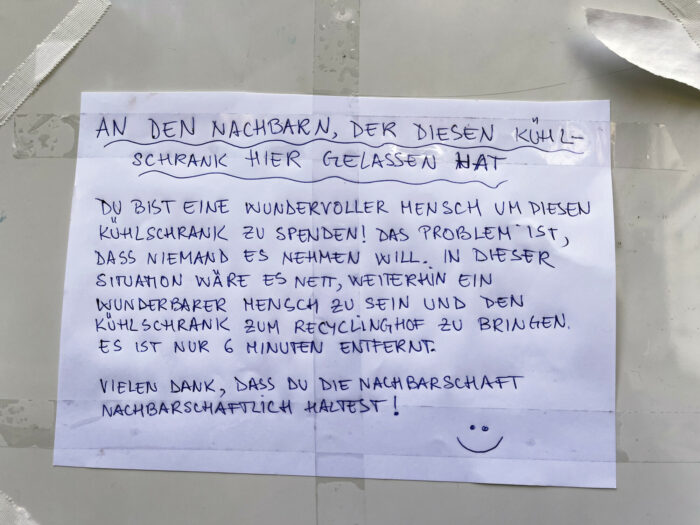 AN DEN NACHBARN, DER DIESEN KÜHL-
SCHRANK HIER GELASSEN HAT
DU BIST EINE WUNDERVOLLER MENSCH UM DIESEN
KÜHLSCHRANK ZU SPENDEN! DAS PROBLEM IST,
DASS NIEMAND ES NEHMEN WILL. IN DIESER
SITUATION WÄRE ES NETT, WEITERHIN EIN
WUNDERBARER MENSCH ZU SEIN UND DEN
KÜHLSCHRANK ZUM RECYCLINGHOF ZU BRINGEN.
ES IST NUR 6 MINUTEN ENTFERNT.
VIELEN DANK, DASS DU DIE NACHBARSCHAFT
NACHBARSCHAFTLICH HÄLTEST!